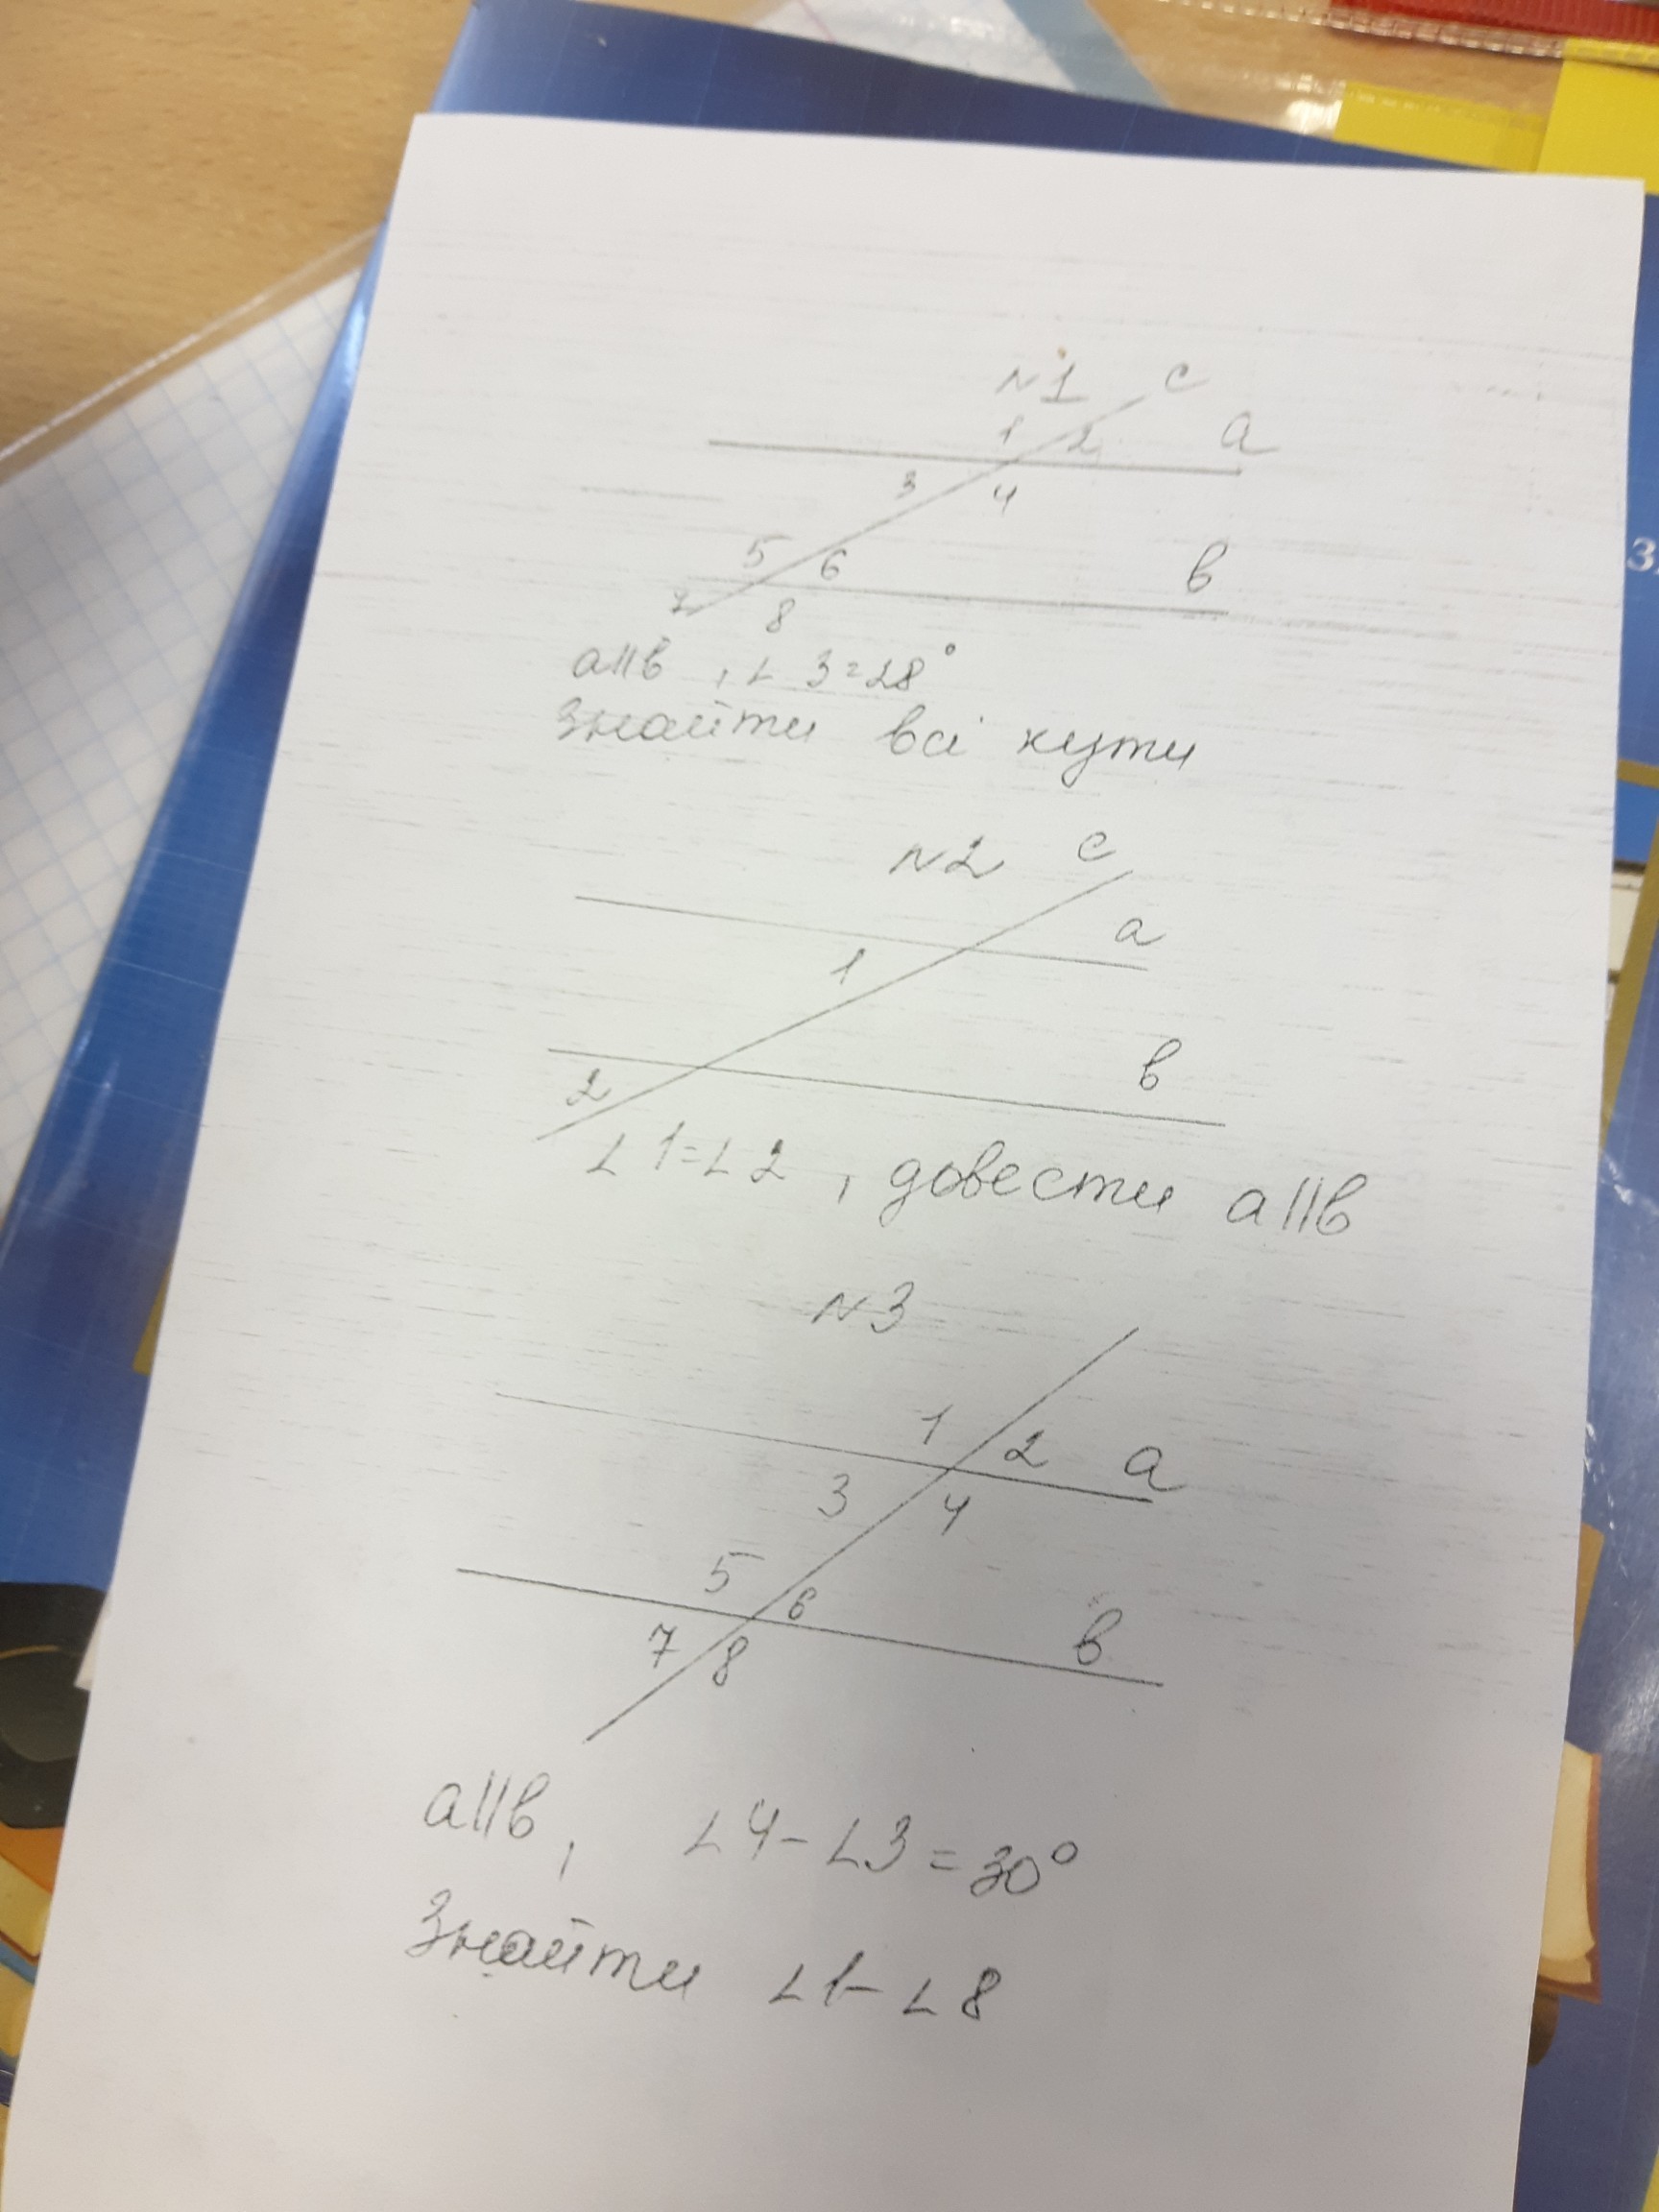 N1 c
1 2 a
3 4
5 6 в
7 8
a||в , ∠ 3=28°
Знайти всі кути
N2 c
a
1
в
2
∠1=∠2 , довести a||в
N3
1 2 a
3 4
5 6
7 8 в
a||в, ∠4-∠3=30°
Знайти ∠1-∠8